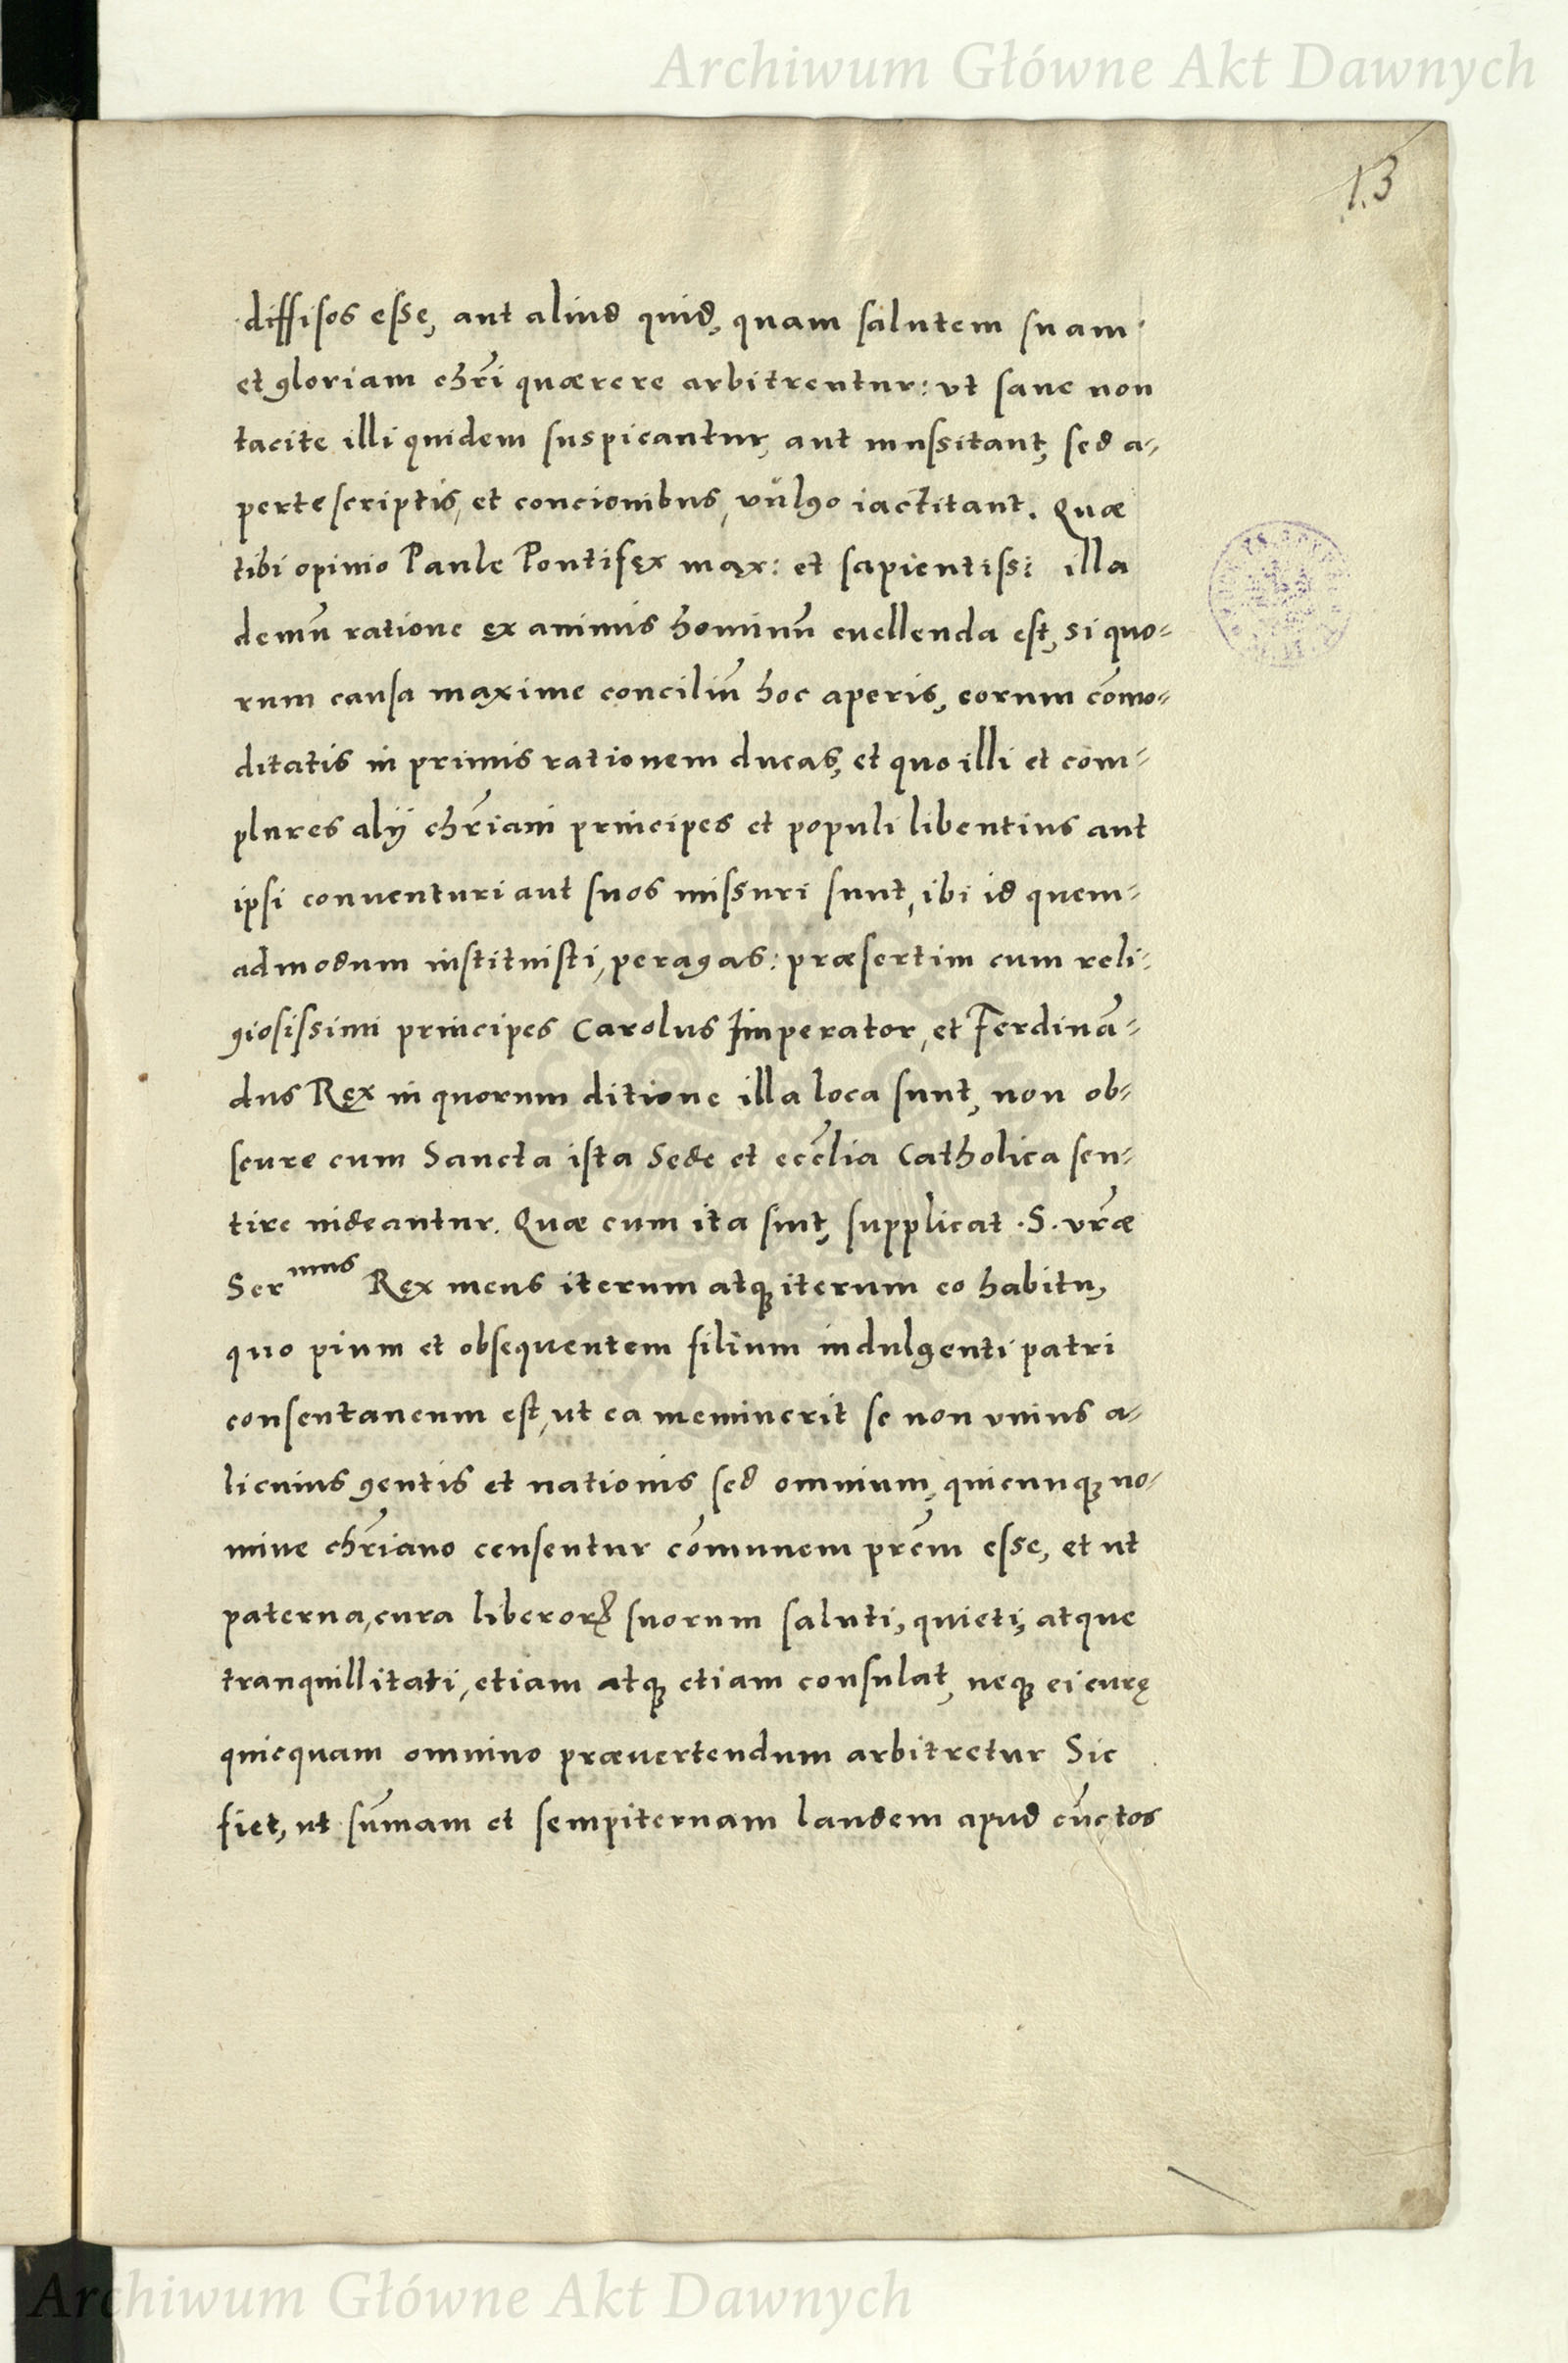 Archiwum Główne Akt Dawnych
13
diffisos esse, aut aliud quid, quam salutem suam
et gloriam chr̃i quærere arbitrentur: vt sane non
tacite illi quidem suspicantur, aut mussitant, sed a-
perte scriptis, et concionibus, vulgo iactitant. Quæ
tibi opinio Paule Pontifex max: et sapientiss: illa
demũ ratione ex animis hominũ euellenda est, si quo-
rum causa maxime conciliũ hoc aperis, eorum cõmo-
ditatis in primis rationem ducas, et quo illi et com-
plures alij chr̃iani principes et populi libentius aut
ipsi conuenturi aut suos missuri sunt, ibi id quem-
admodum instituisti, peragas: præsertim cum reli-
giosissimi principes Carolus Imperator, et Ferdinã-
dus Rex in quorum ditione illa loca sunt, non ob-
scure cum Sancta ista Sede et eccl̃ia Catholica sen-
tire uideantur. Quæ cum ita sint, supplicat .S. vr̃æ
Ser^mus Rex meus iterum atq; iterum eo habitu,
quo pium et obsequentem filium indulgenti patri
consentaneum est, ut ea meminerit se non vnius a-
licuius gentis et nationis sed omnium, quicunq; no-
mine chr̃iano censentur cõmunem pr̃em esse, et ut
paterna, cura liberorꝝ suorum saluti, quieti, atque
tranquillitati, etiam atq; etiam consulat, neq; ei curę
quicquam omnino præuertendum arbitretur Sic
fiet, ut sũmam et sempiternam laudem apud cũctos
Archiwum Główne Akt Dawnych